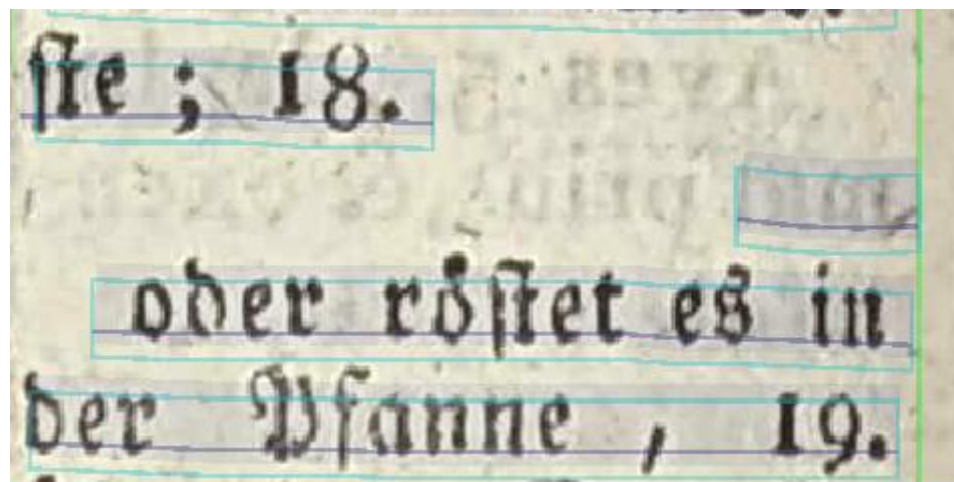 ſte ; 18.
oder röſtet es in
der Pfanne , 19.